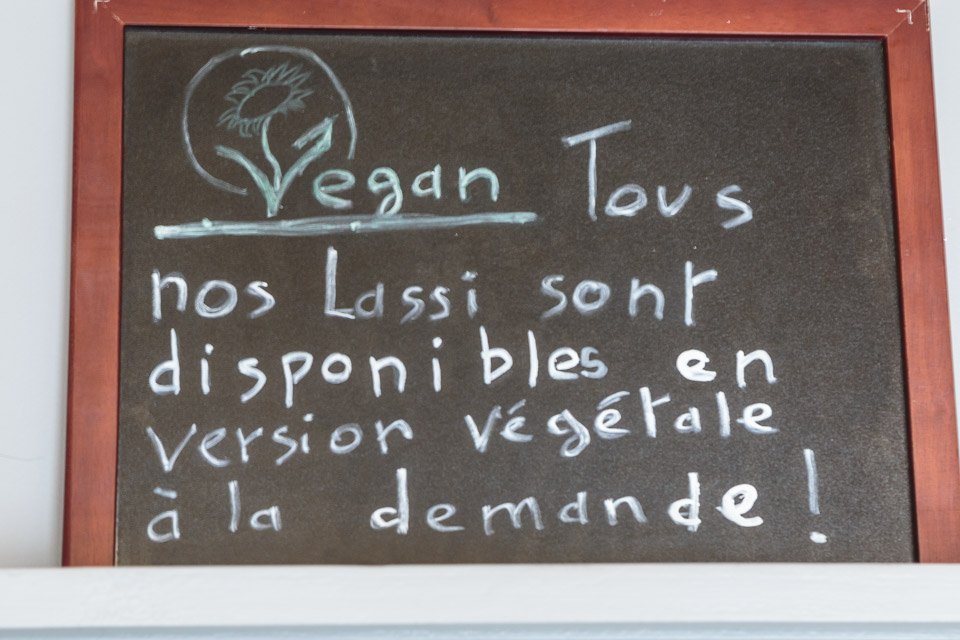 Vegan Tous
nos Lassi sont
disponibles en
version végétale
à la demande !